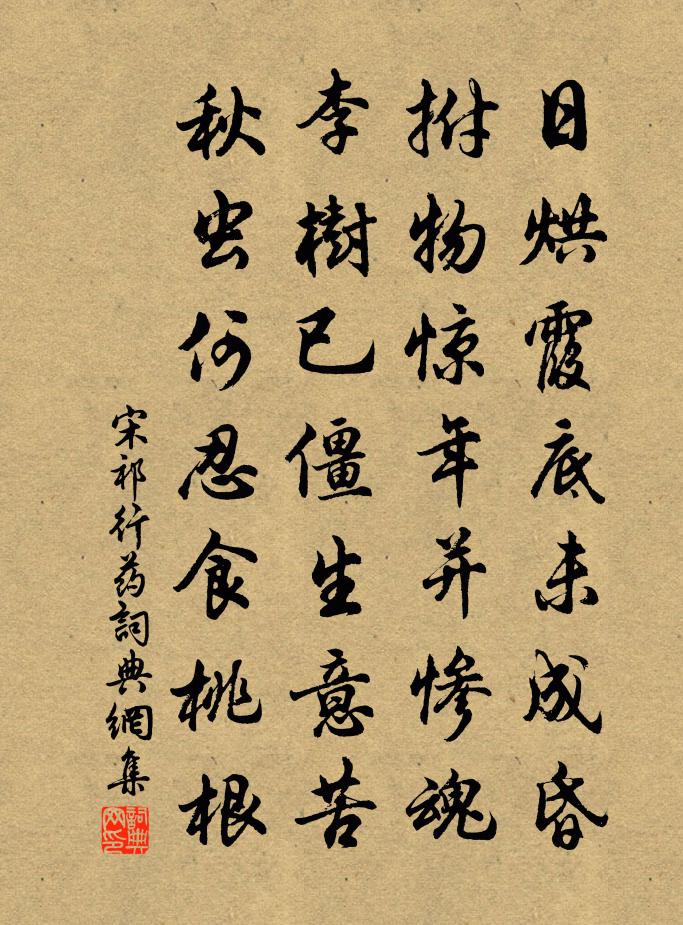 日烘霞底未成昏
拊物惊年并惨魂
李樹已僵生意苦
秋虫何忍食桃根
宋祁行药詞典網集
詞典網印